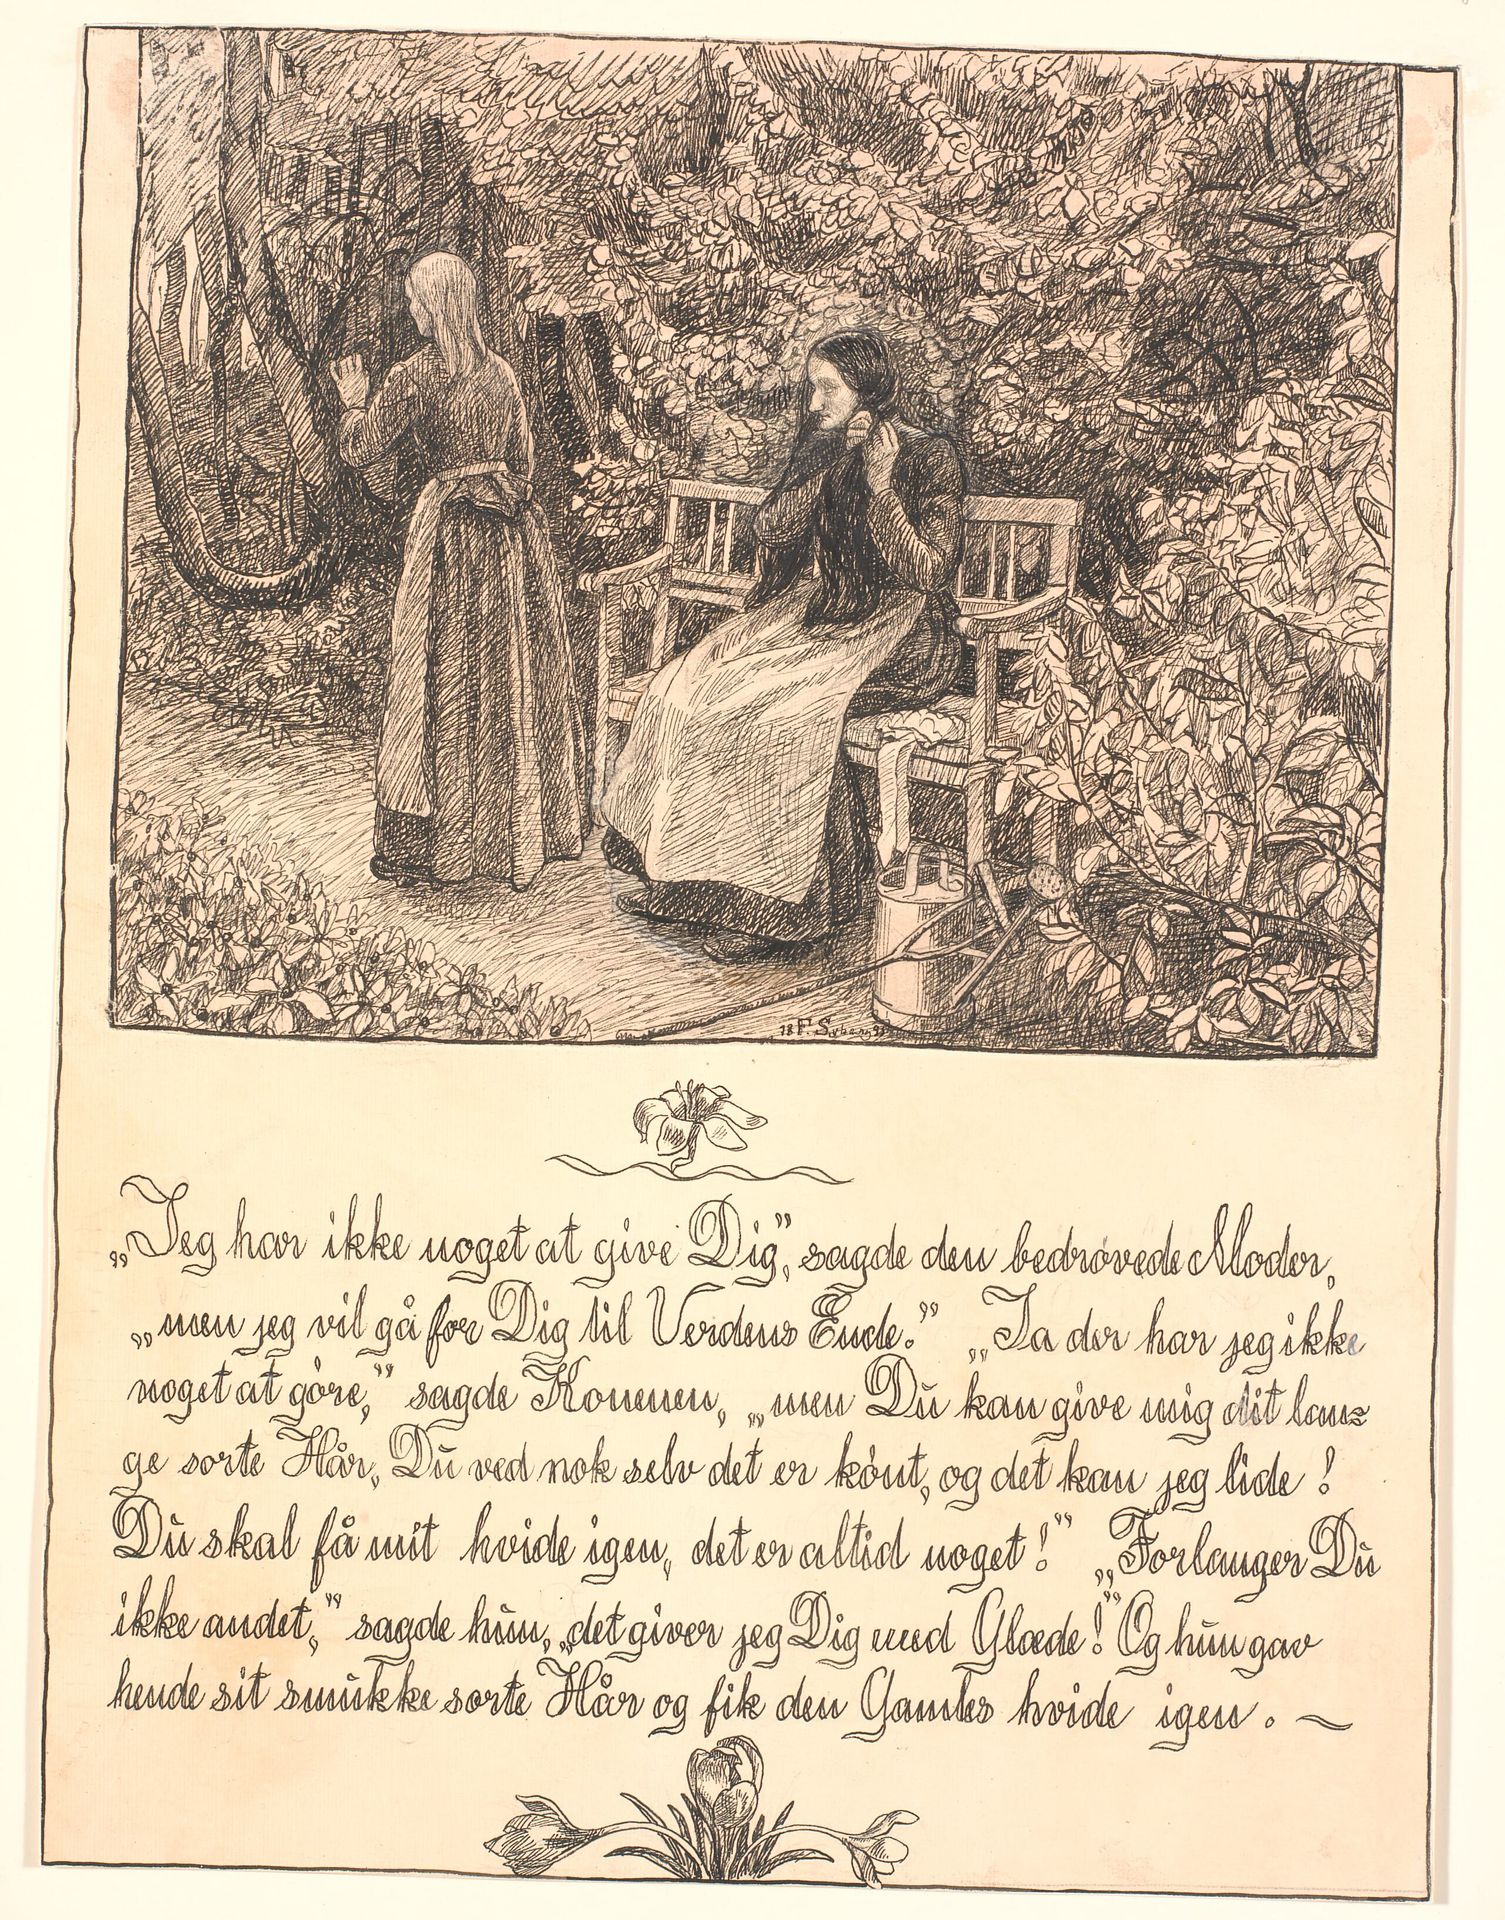 18 F. Syberg 98
„Jeg har ikke noget at give Dig”, sagde den bedrøvede Moder,
„men jeg vil gå for Dig til Verdens Ende.” „Ja der har jeg ikke
noget at göre,” sagde Konenen, „men Du kan give mig dit lan=
ge sorte Hår, Du ved nok selv det er könt, og det kan jeg lide!
Du skal få mit hvide igen, det er altid noget!” „Forlanger Du
ikke andet,” sagde hun, „det giver jeg Dig med Glæde!” Og hun gav
hende sit smukke sorte Hår og fik den Gamles hvide igen. ~